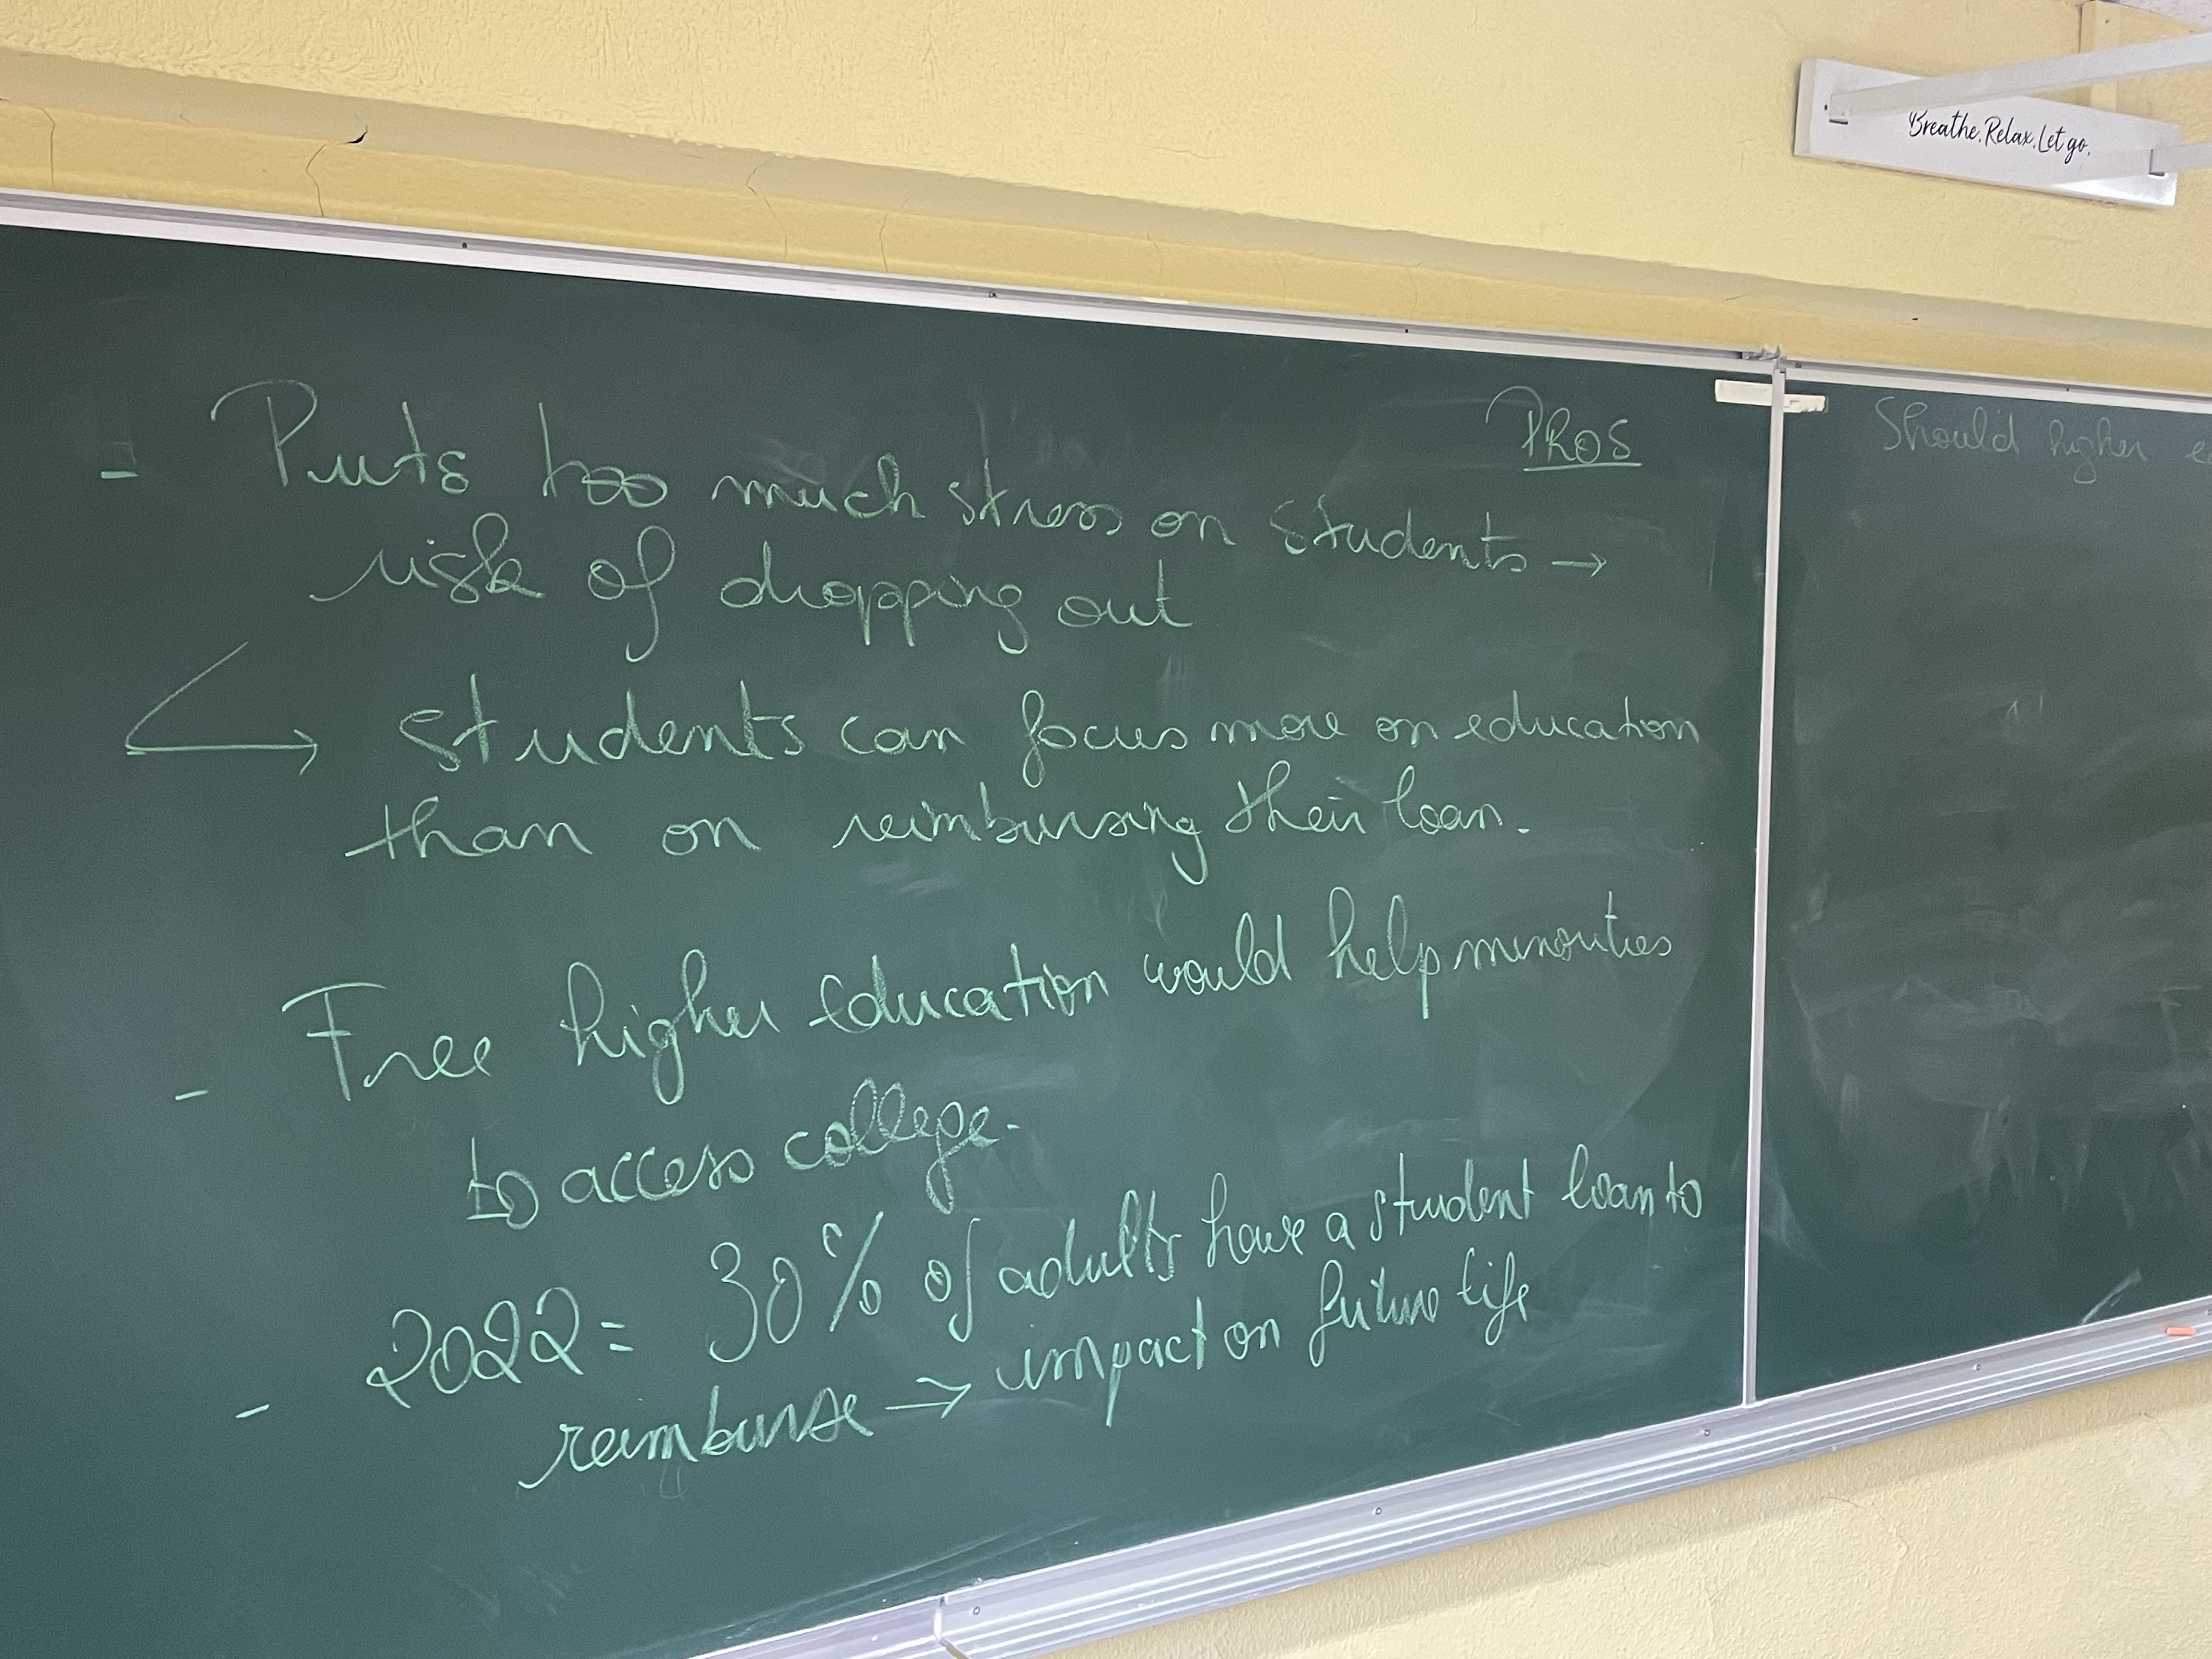 Breathe. Relax. Let go.
PROS
- Puts too much stress on students →
risk of dropping out
↳ students can focus more on education
than on reimbursing their loan.
- Free higher education would help minorities
to access college.
- 2022 = 30% of adults have a student loan to
reimburse → impact on future life
Should higher